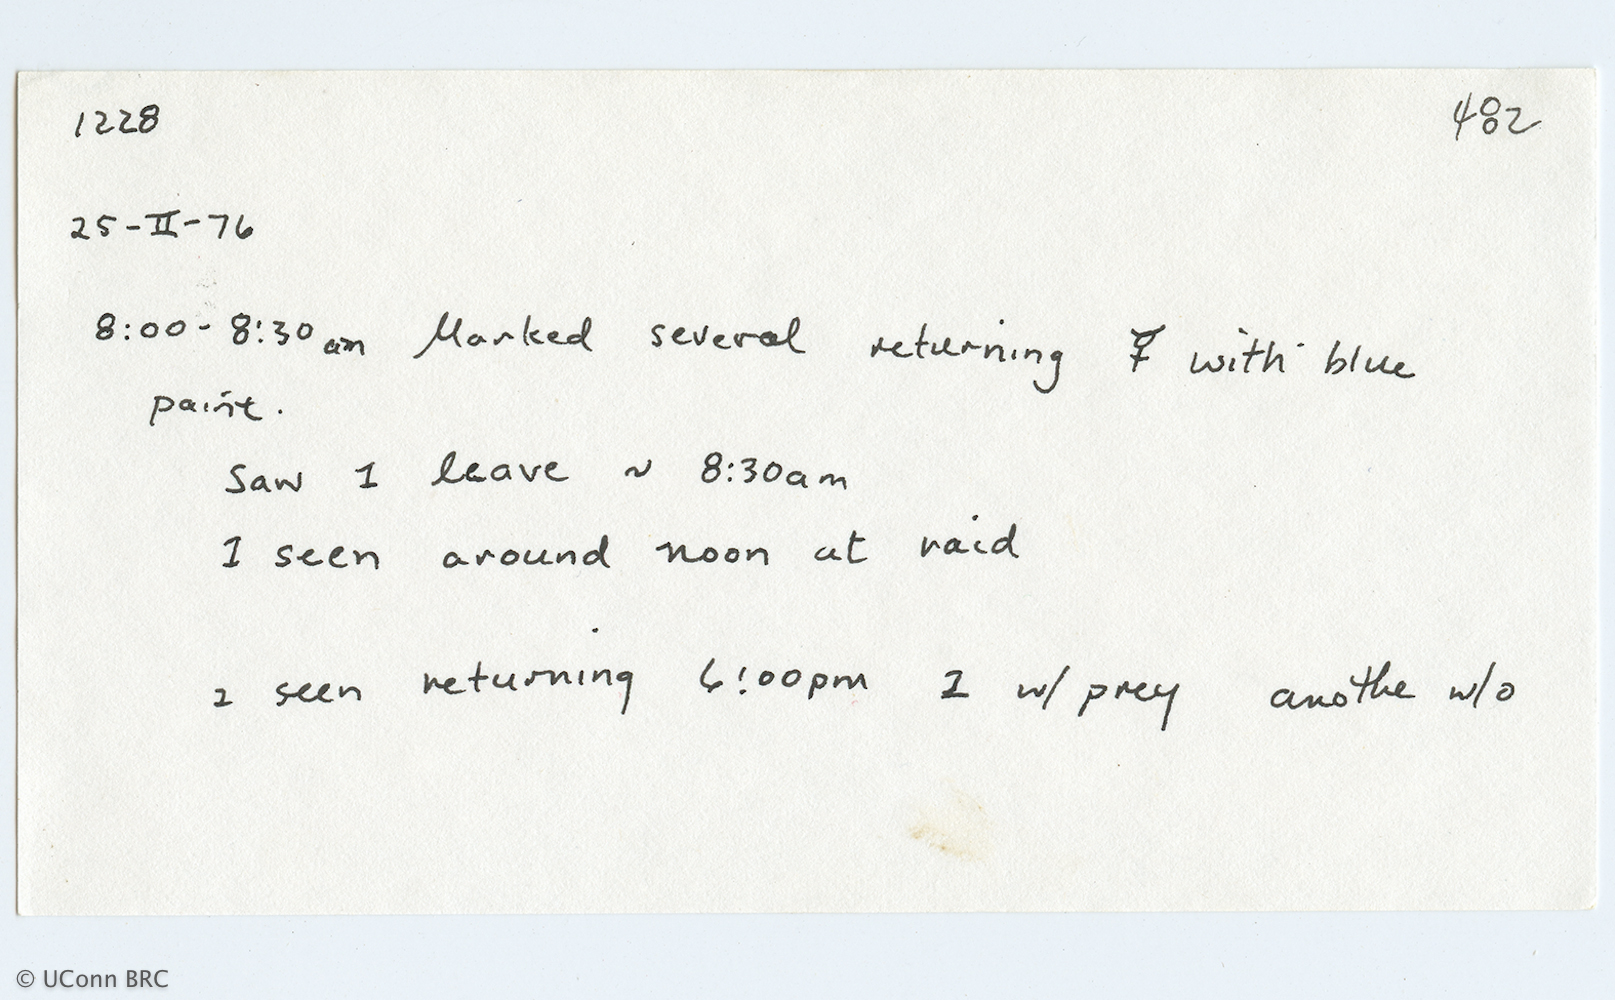 1228 482
25-II-76
8:00-8:30am Marked several returning ☿ with blue
paint.
Saw 1 leave ~ 8:30am
1 seen around noon at raid
2 seen returning 6:00pm 1 w/ prey anothe w/o
© UConn BRC